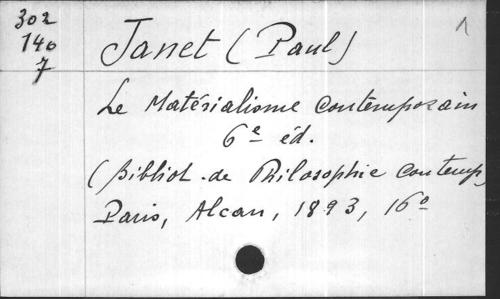 302
140
7
Janet (Paul)
1
Le Matérialisme Contemporain
6e éd.
(Bibliot. de Philosophie contemp.
Paris, Alcan, 1893, 16o